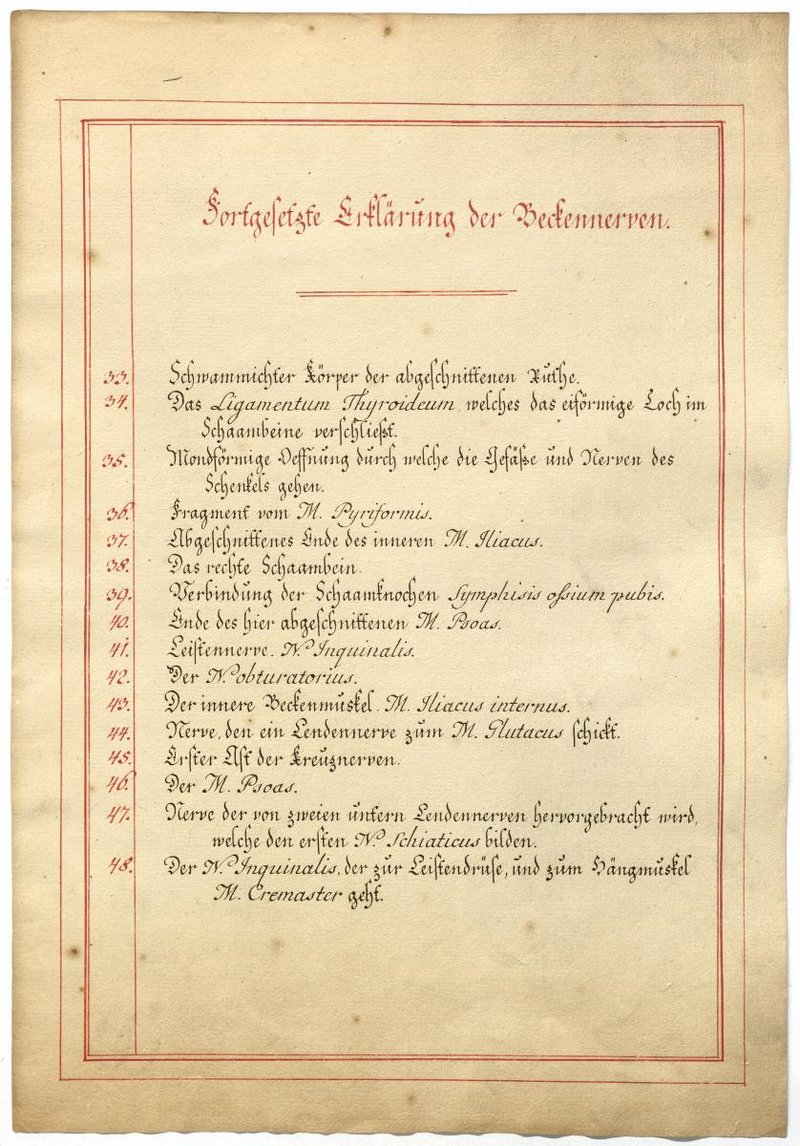 Fortgesetzte Erklärung der Beckennerven.
33. Schwammichter Körper der abgeschnittenen Ruthe.
34. Das Ligamentum Thyroideum, welches das eiförmige Loch im
Schaambeine verschließt.
35. Mondförmige Oeffnung durch welche die Gefäße und Nerven des
Schenkels gehen.
36. Fragment vom M. Pyriformis.
37. Abgeschnittenes Ende des inneren M. Iliacus.
38. Das rechte Schaambein.
39. Verbindung der Schaamknochen Symphisis ossium pubis.
40. Ende des hier abgeschnittenen M. Psoas.
41. Leistennerve. N. Inquinalis.
42. Der N. obturatorius.
43. Der innere Beckenmuskel. M. Iliacus internus.
44. Nerve, den ein Lendennerve zum M. Glutacus schickt.
45. Erster Ast der Kreuznerven.
46. Der M. Psoas.
47. Nerve der von zweien untern Lendennerven hervorgebracht wird,
welche den ersten N. Schiaticus bilden.
48. Der N. Inquinalis, der zur Leistendrüse, und zum Hängmuskel
M. Cremaster geht.